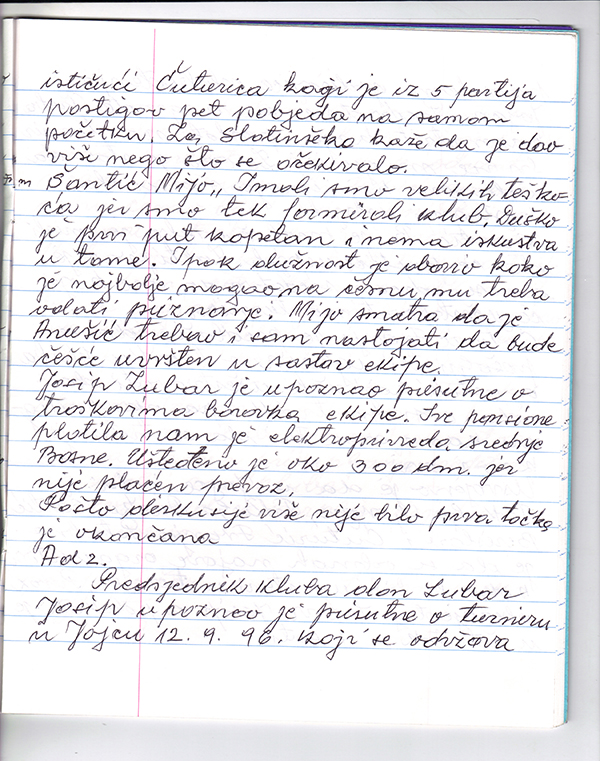 ističući Čuturica koji je iz 5 partija
postigov pet pobjeda na samom
početku. Za Slatinšeka kaže da je dav
više nego što se očekivalo.
Šantić Mijo „ Imali smo velikih teško-
ća jer smo tek formirali klub. Duško
je prvi put kapetan i nema iskustva
u tome. Ipak dužnost je obavio kako
je najbolje mogao na čemu mu treba
odati priznanje. Mijo smatra da je
Anušić trebao i sam nastojati da bude
češće uvršten u sastav ekipe.
Josip Lubar je upoznao prisutne o
troškovima boravka ekipe. Sve pansione
platila nam je elektroprivreda srednje
Bosne. Ušteđeno je oko 300 dm. jer
nije plaćen prevoz.
Pošto diskusije više nije bilo prva točka
je okončana
Ad 2.
Predsjednik kluba don Lubar
Josip upoznao je prisutne o turniru
u Jajcu 12. 9. 96. koji se održava